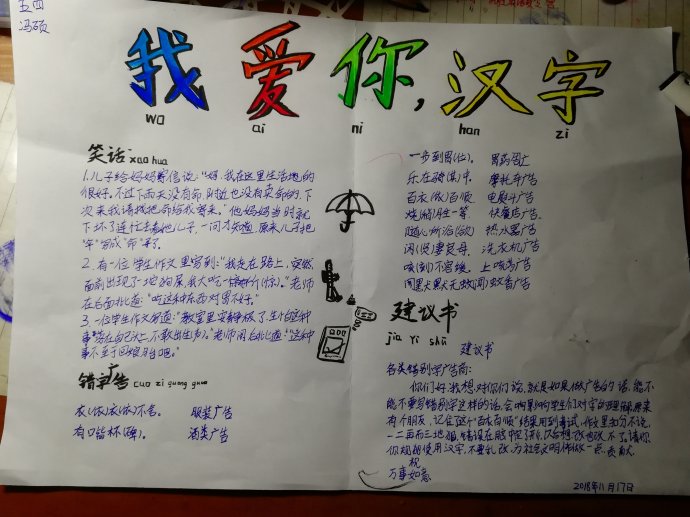 五四
冯硕
我爱你,汉字
wo ai ni han zi
笑话 xao hua
1.儿子给妈妈寄信说:"妈,我在这里生活过的
很好。不过下雨天没有命,附近也没有卖命的,下
次来我请
他妈妈当时就
儿子,一问才知道,原来儿子把
"伞"写成"命"了。
2.有一位学生作文里写到:"我走在路上,突然
面前出现了一地的屎,我大吃一
老师
在后面批道:"吃这种东西对胃不好。"
3.一位学生作文写道:"教室里安静极了,生怕这种
事落在自己头上,不敢出生(声)。"老师用后批道:"这种
事不至于回娘肚吧。"
错字广告 cuo zi guang guao
衣(依)衣(依)不舍。 服装广告
有口皆杯(碑)。 酒类广告
一步到胃(位)。 胃药广告
乐在骑(其)中。 摩托车广告
百衣(依)百顺 电熨斗广告
烧(稍)胜一筹。 快餐店广告.
随心所浴(欲) 热水器广告
闲(贤)妻良母. 洗衣机广告
咳(刻)不容缓。 止咳药广告
默默无蚊(闻) 蚊香广告
建议书
jia yi shū
建议书
各类错别字广告商:
你们好,我想对你们说,就是如果做广告的话,能不
能不要写错别字这样的话,会影响到学生们对字的理解,原来
有个朋友,记住这个"百衣百顺"结果用到考试,作文里扣分不说,
一二再而三地犯,错误在脑中
了,以后想改也改不了。请你
们规范使用汉字,不要乱改,为社会文明作做一点贡献。
祝
万事如意
2018年11月17日